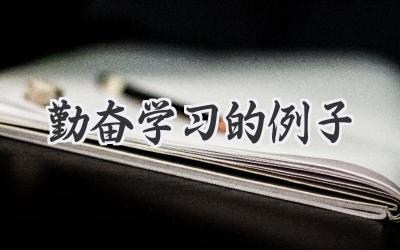 勤奋学习的例子